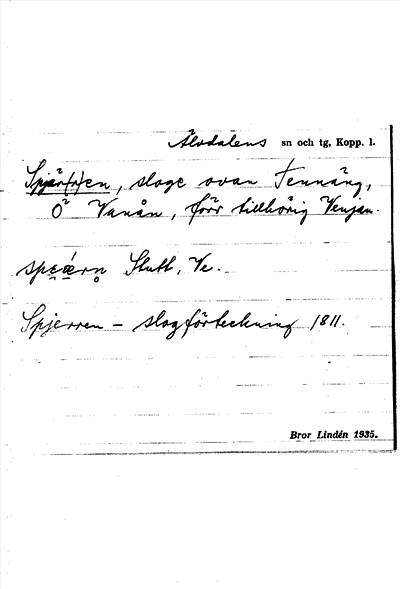 Älvdalens sn och tg, Kopp. l.
Spjär(r)en, sloge ovan Tennäng,
Ö Vanån, förr tillhörig Venjan.
Stutt, Ve.
Spjerren – slogförteckning 1811.
Bror Lindén 1935.